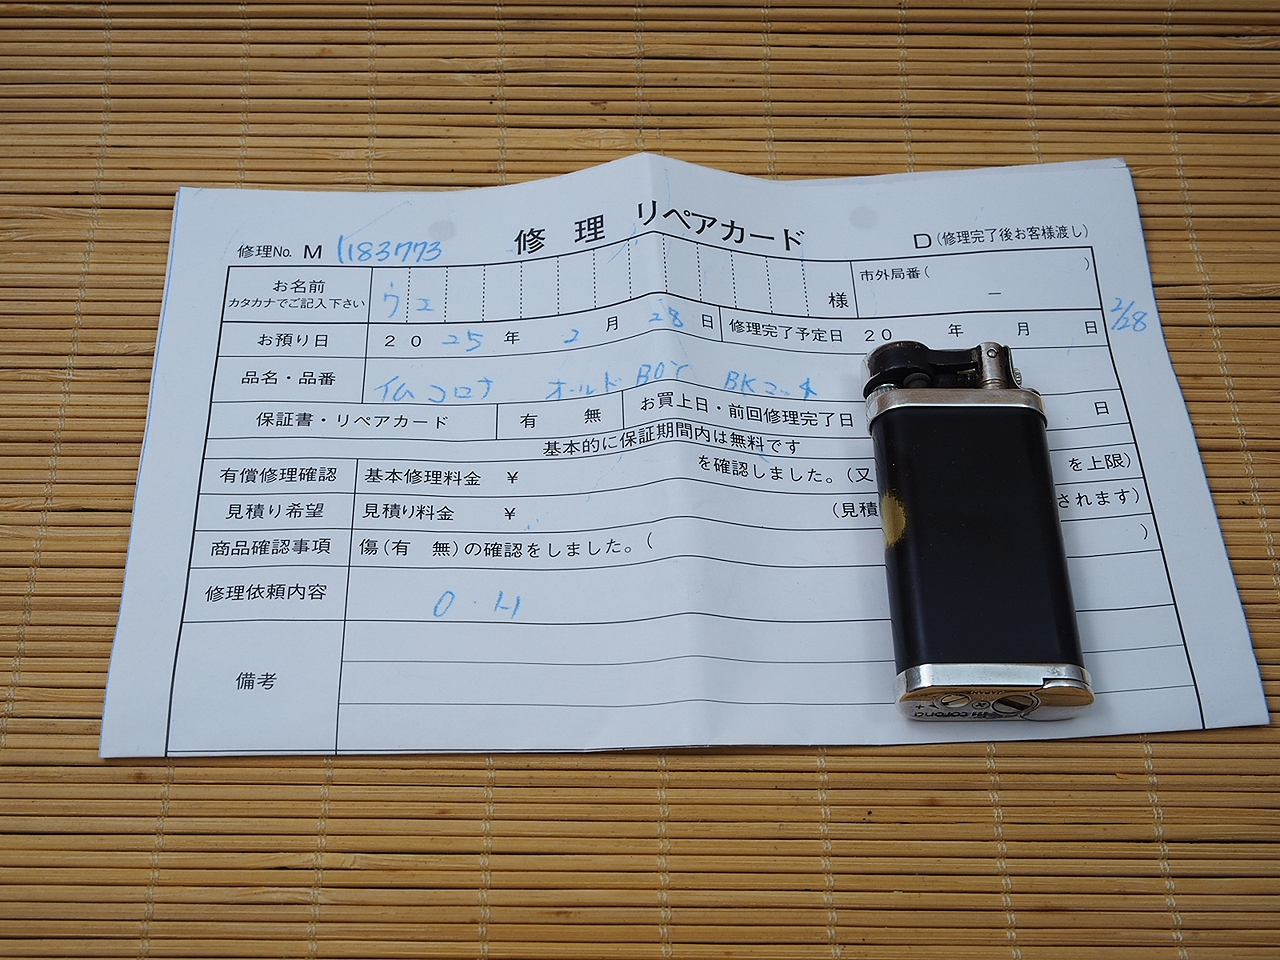 修理 リペアカード
修理No. M 1183773 D(修理完了後お客様渡し)
お名前 カタカナでご記入下さい ウエ 様 市外局番( ) ー
お預り日 2025年 2月 28日 修理完了予定日 20 年 月 日 2/28
品名・品番 仏コロナ オールドBOY BKマット
保証書・リペアカード 有 無 お買上日・前回修理完了日 日
基本的に保証期間内は無料です
有償修理確認 基本修理料金 ¥ を確認しました。(又 を上限)
見積り希望 見積り料金 ¥ (見積 されます)
商品確認事項 傷(有 無)の確認をしました。( )
修理依頼内容 O・H
備考
corona